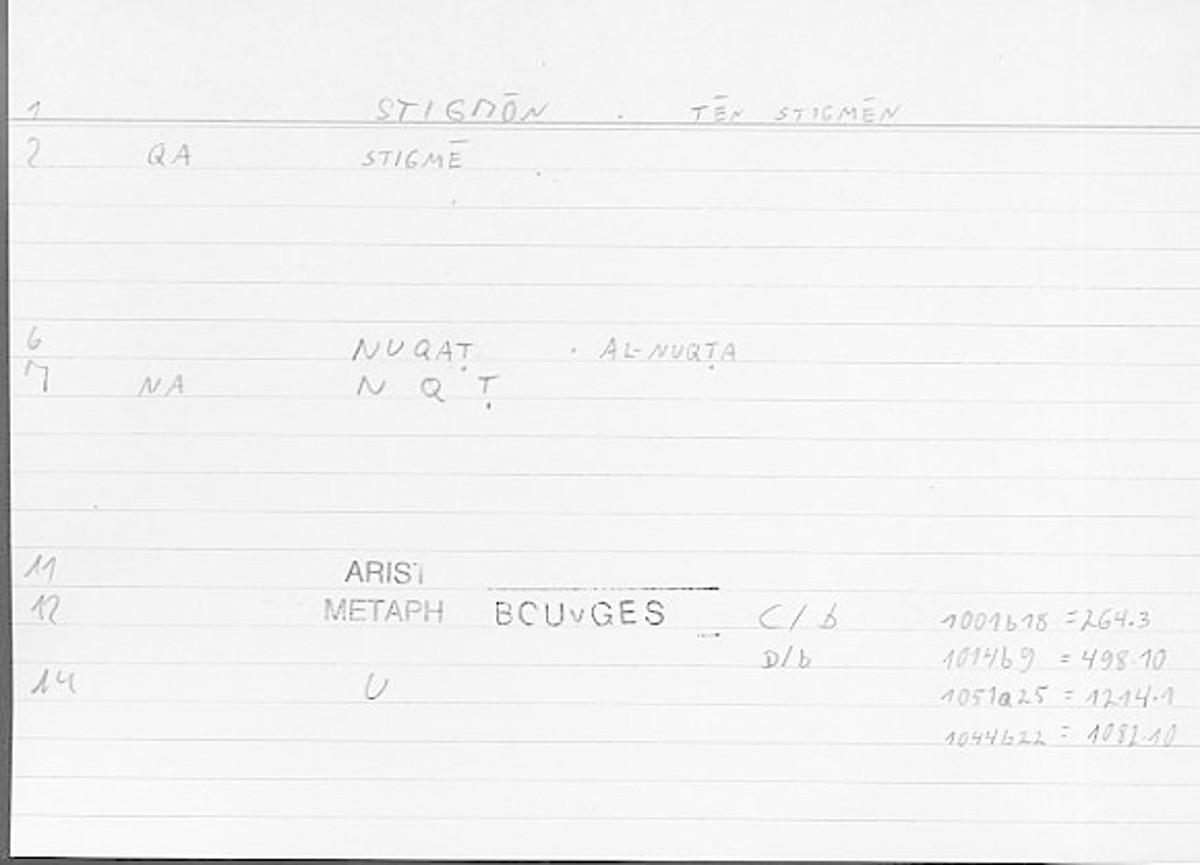 1 STIGMŌN . TĒN STIGMĒN
2 QA STIGMĒ
6 NUQAṬ · AL-NUQṬA
7 NA N Q Ṭ
11 ARIST
12 METAPH BOUvGES C/b 1001b18 = 264.3
D/b 1014b9 = 498.10
14 U 1051a25 = 1214.1
1044b22 = 1082.10